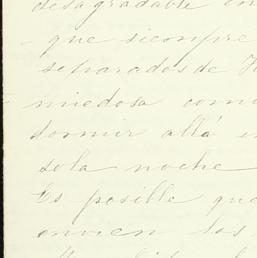 desagradable en
que siempre
separados de
miedosa como
dormir allá e
sola noche
Es posible que
envien las